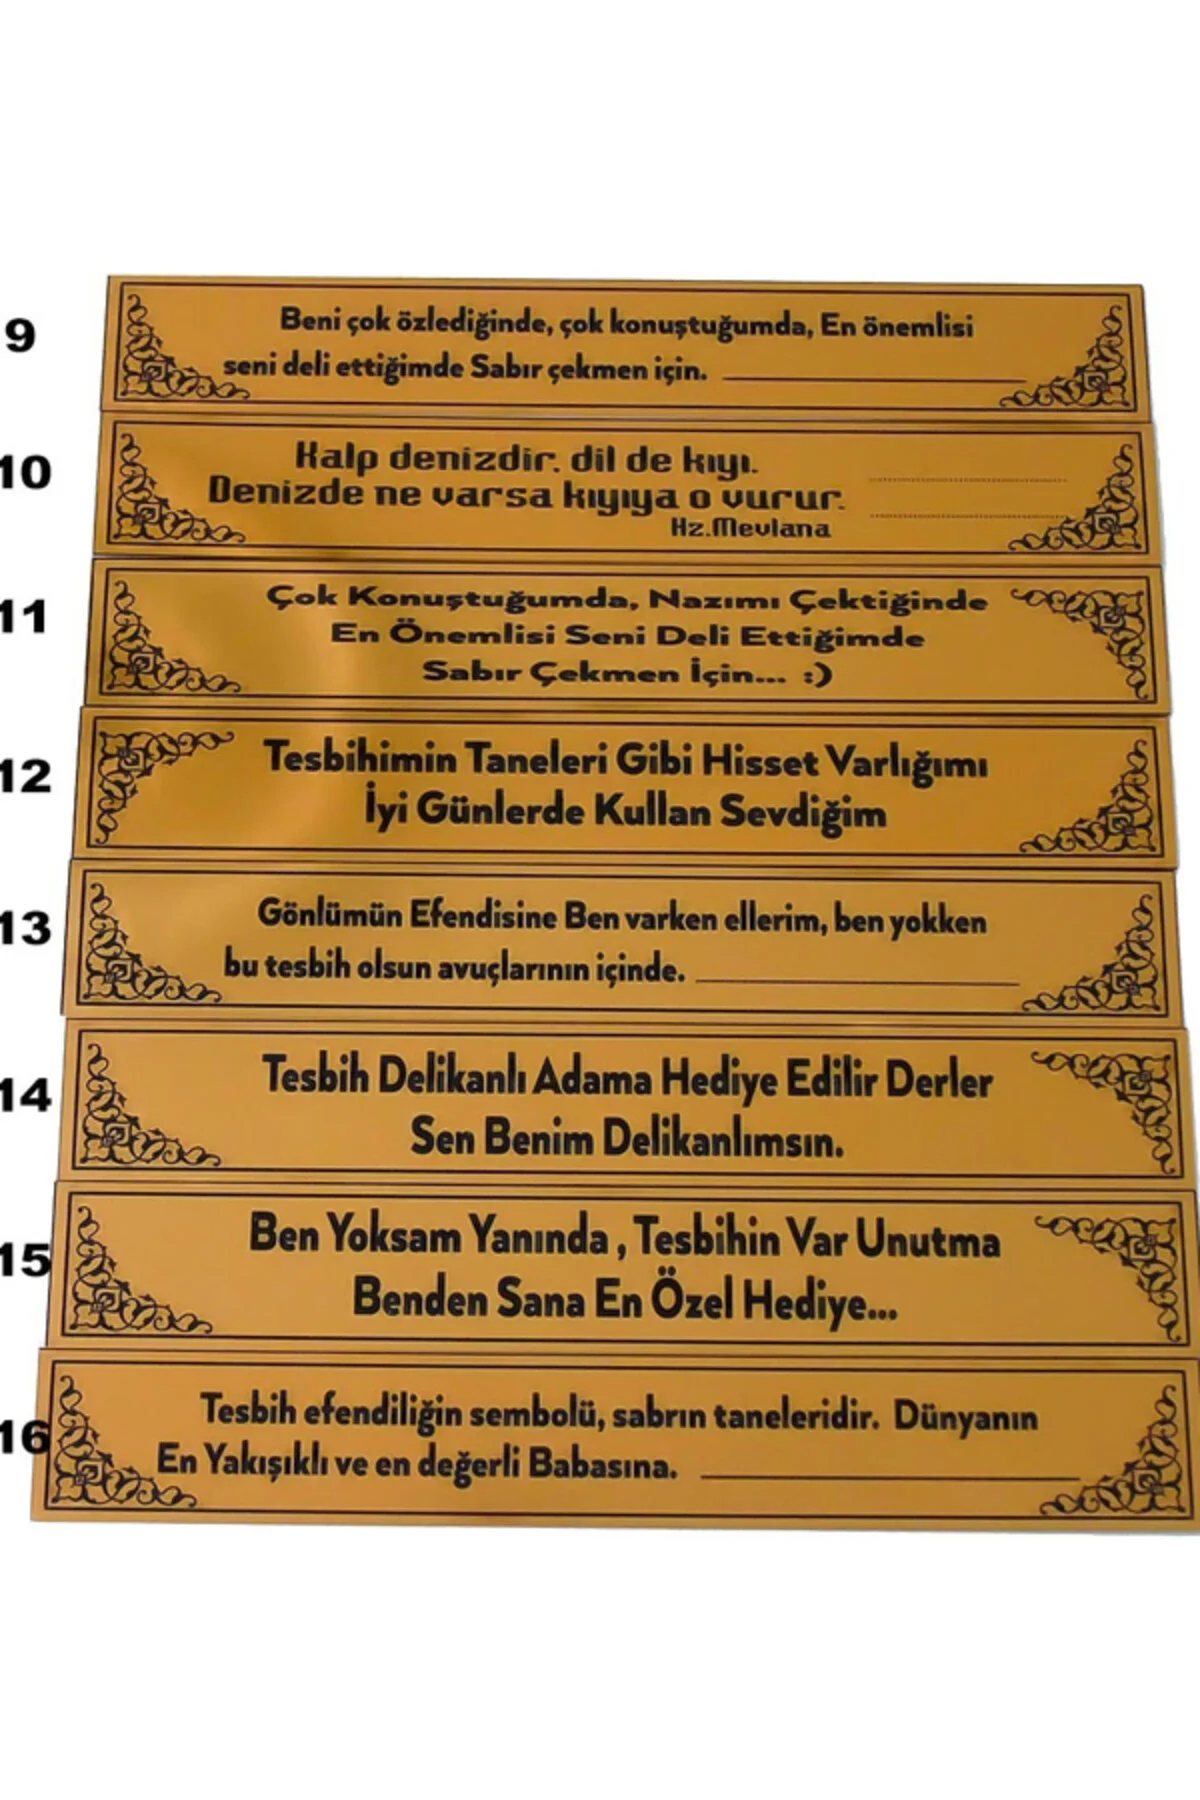 9
Beni çok özlediğinde, çok konuştuğumda, En önemlisi
seni deli ettiğimde Sabır çekmen için.
10
Kalp denizdir. dil de kıyı.
Denizde ne varsa kıyıya o vurur.
Hz.Mevlana
11
Çok Konuştuğumda, Nazımı Çektiğinde
En Önemlisi Seni Deli Ettiğimde
Sabır Çekmen İçin... :)
12
Tesbihimin Taneleri Gibi Hisset Varlığımı
İyi Günlerde Kullan Sevdiğim
13
Gönlümün Efendisine Ben varken ellerim, ben yokken
bu tesbih olsun avuçlarının içinde.
14
Tesbih Delikanlı Adama Hediye Edilir Derler
Sen Benim Delikanlımsın.
15
Ben Yoksam Yanında , Tesbihin Var Unutma
Benden Sana En Özel Hediye...
16
Tesbih efendiliğin sembolü, sabrın taneleridir. Dünyanın
En Yakışıklı ve en değerli Babasına.